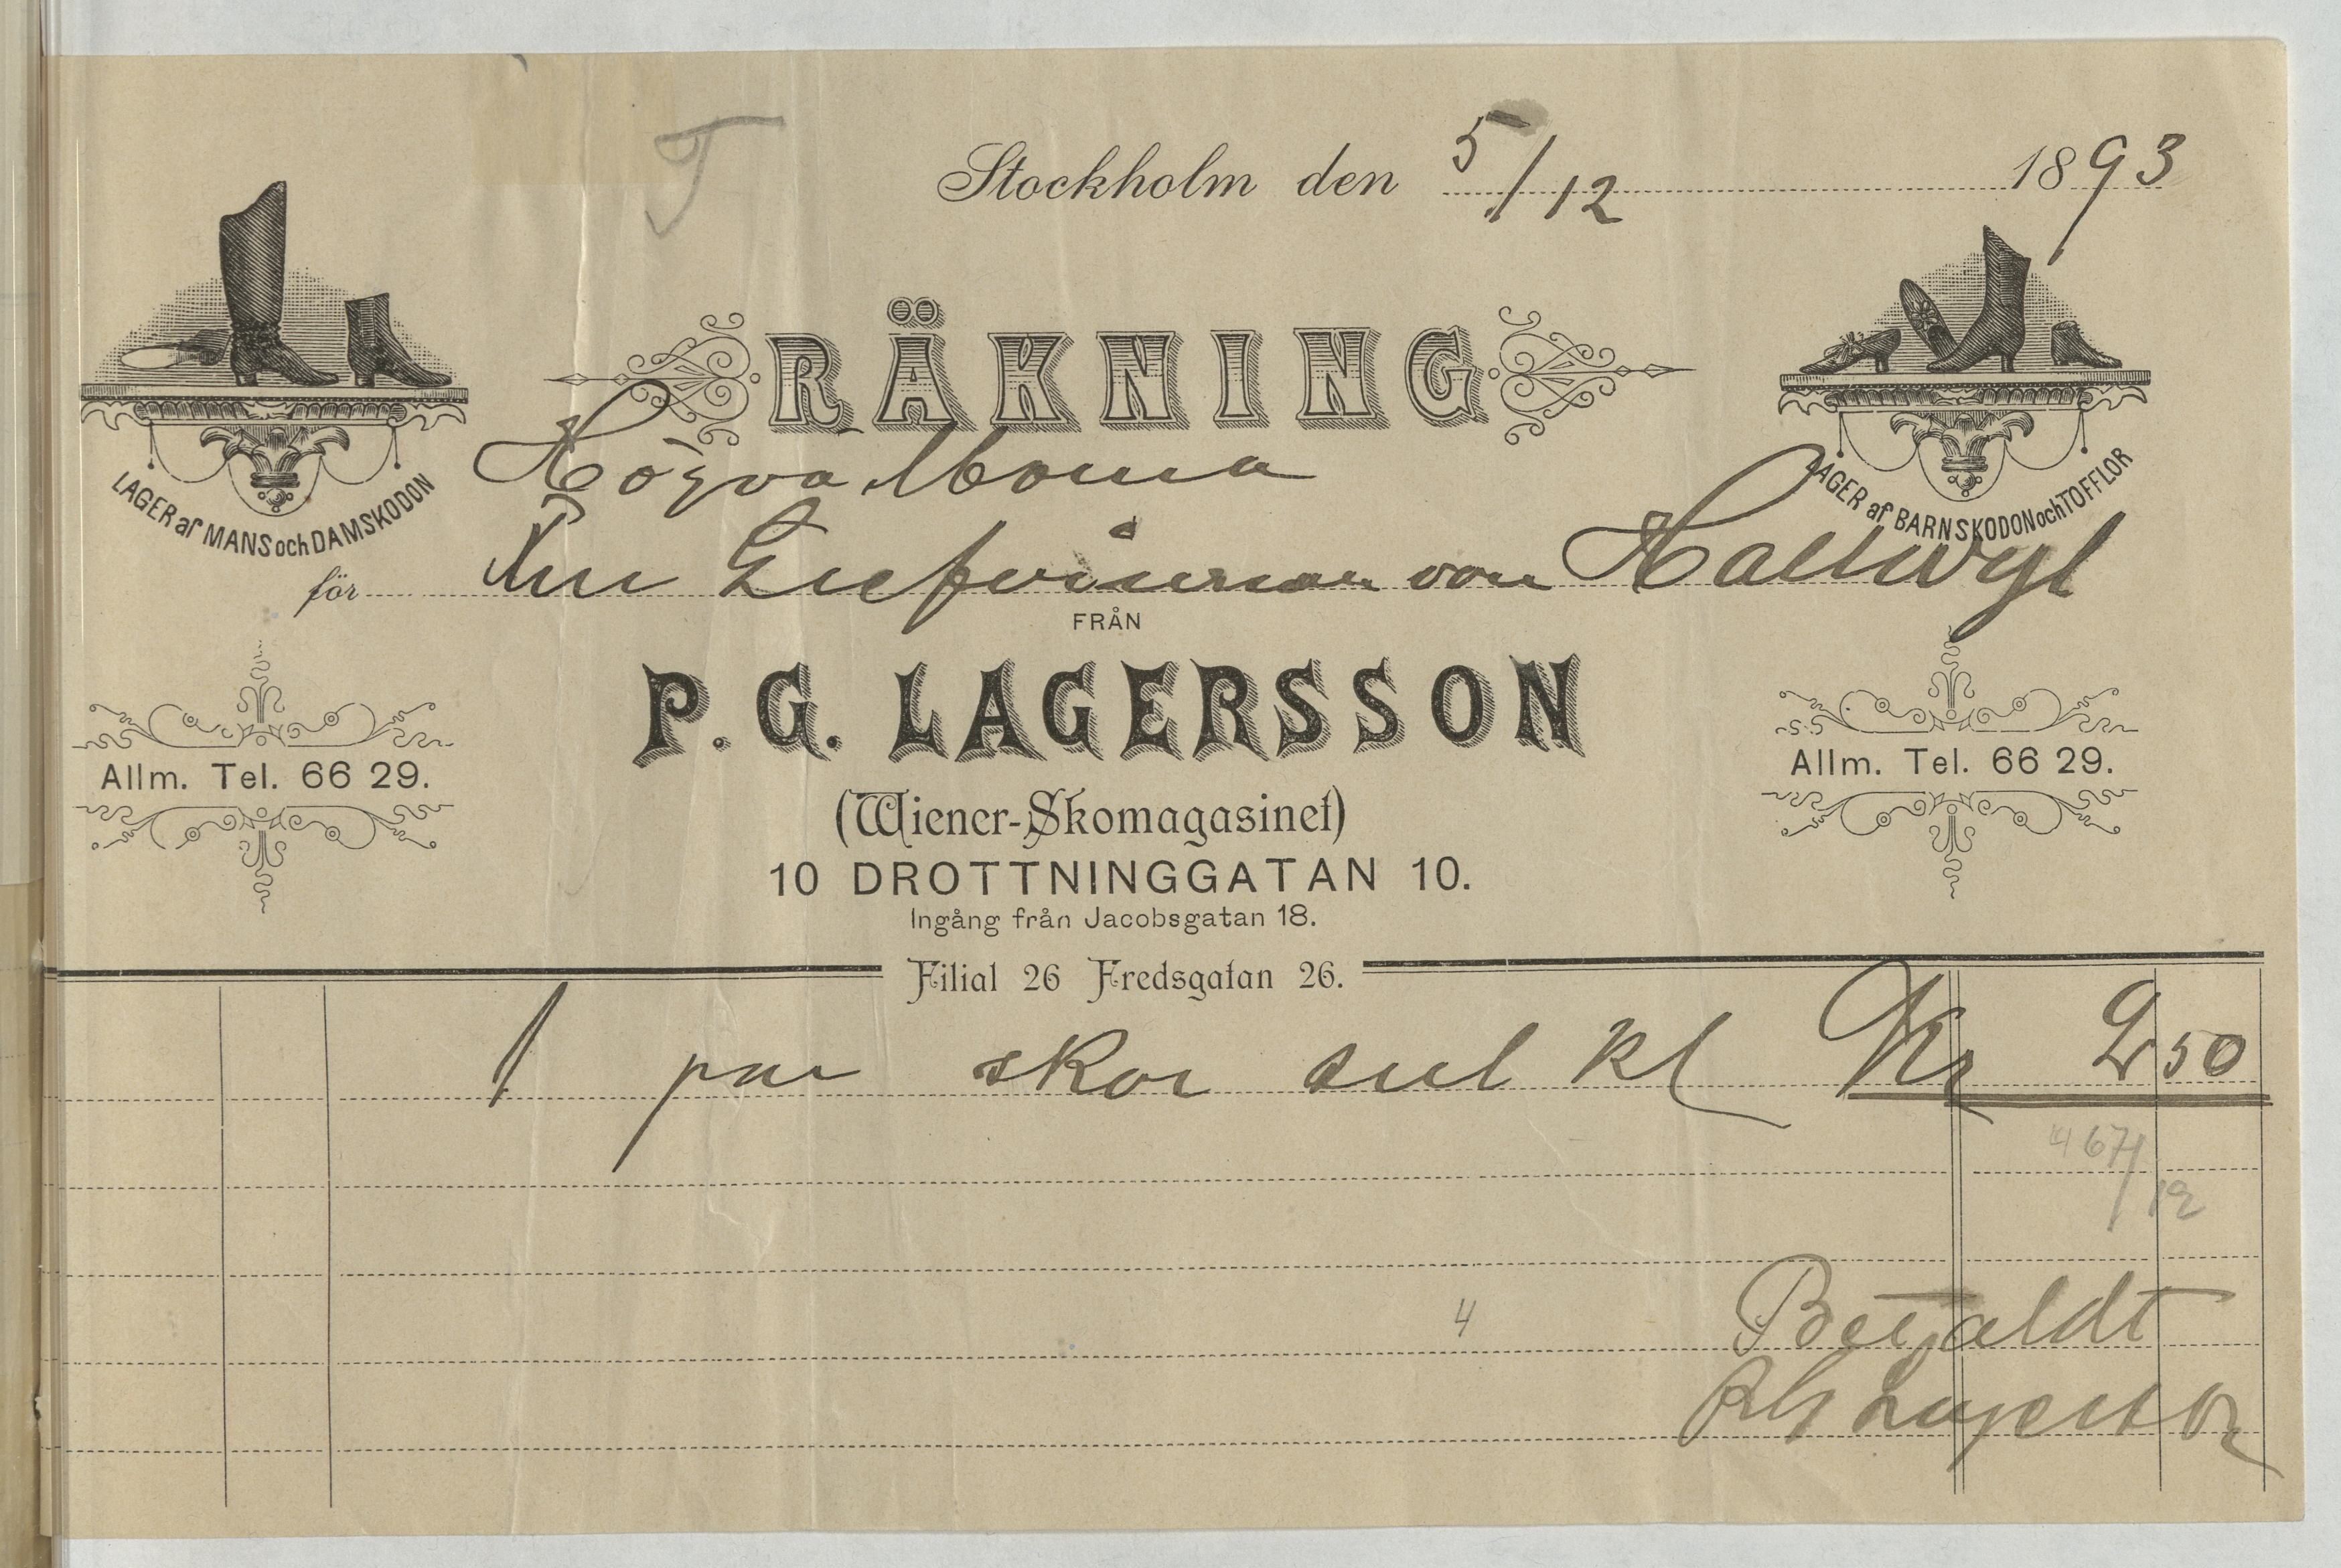 T
Stockholm den 5/12 1893
RÄKNING
LAGER af MANS och DAMSKODON
LAGER af BARNSKODON och TOFFLOR
Högvälborna
för Fru Grefvinnan von Hallwyl
FRÅN
P. G. LAGERSSON
Allm. Tel. 66 29.
Allm. Tel. 66 29.
(Wiener-Skomagasinet)
10 DROTTNINGGATAN 10.
Ingång från Jacobsgatan 18.
Filial 26 Fredsgatan 26.
1 par skor sul kl Kr 2 50
467/12
4
Betaldt
PG Lagersson